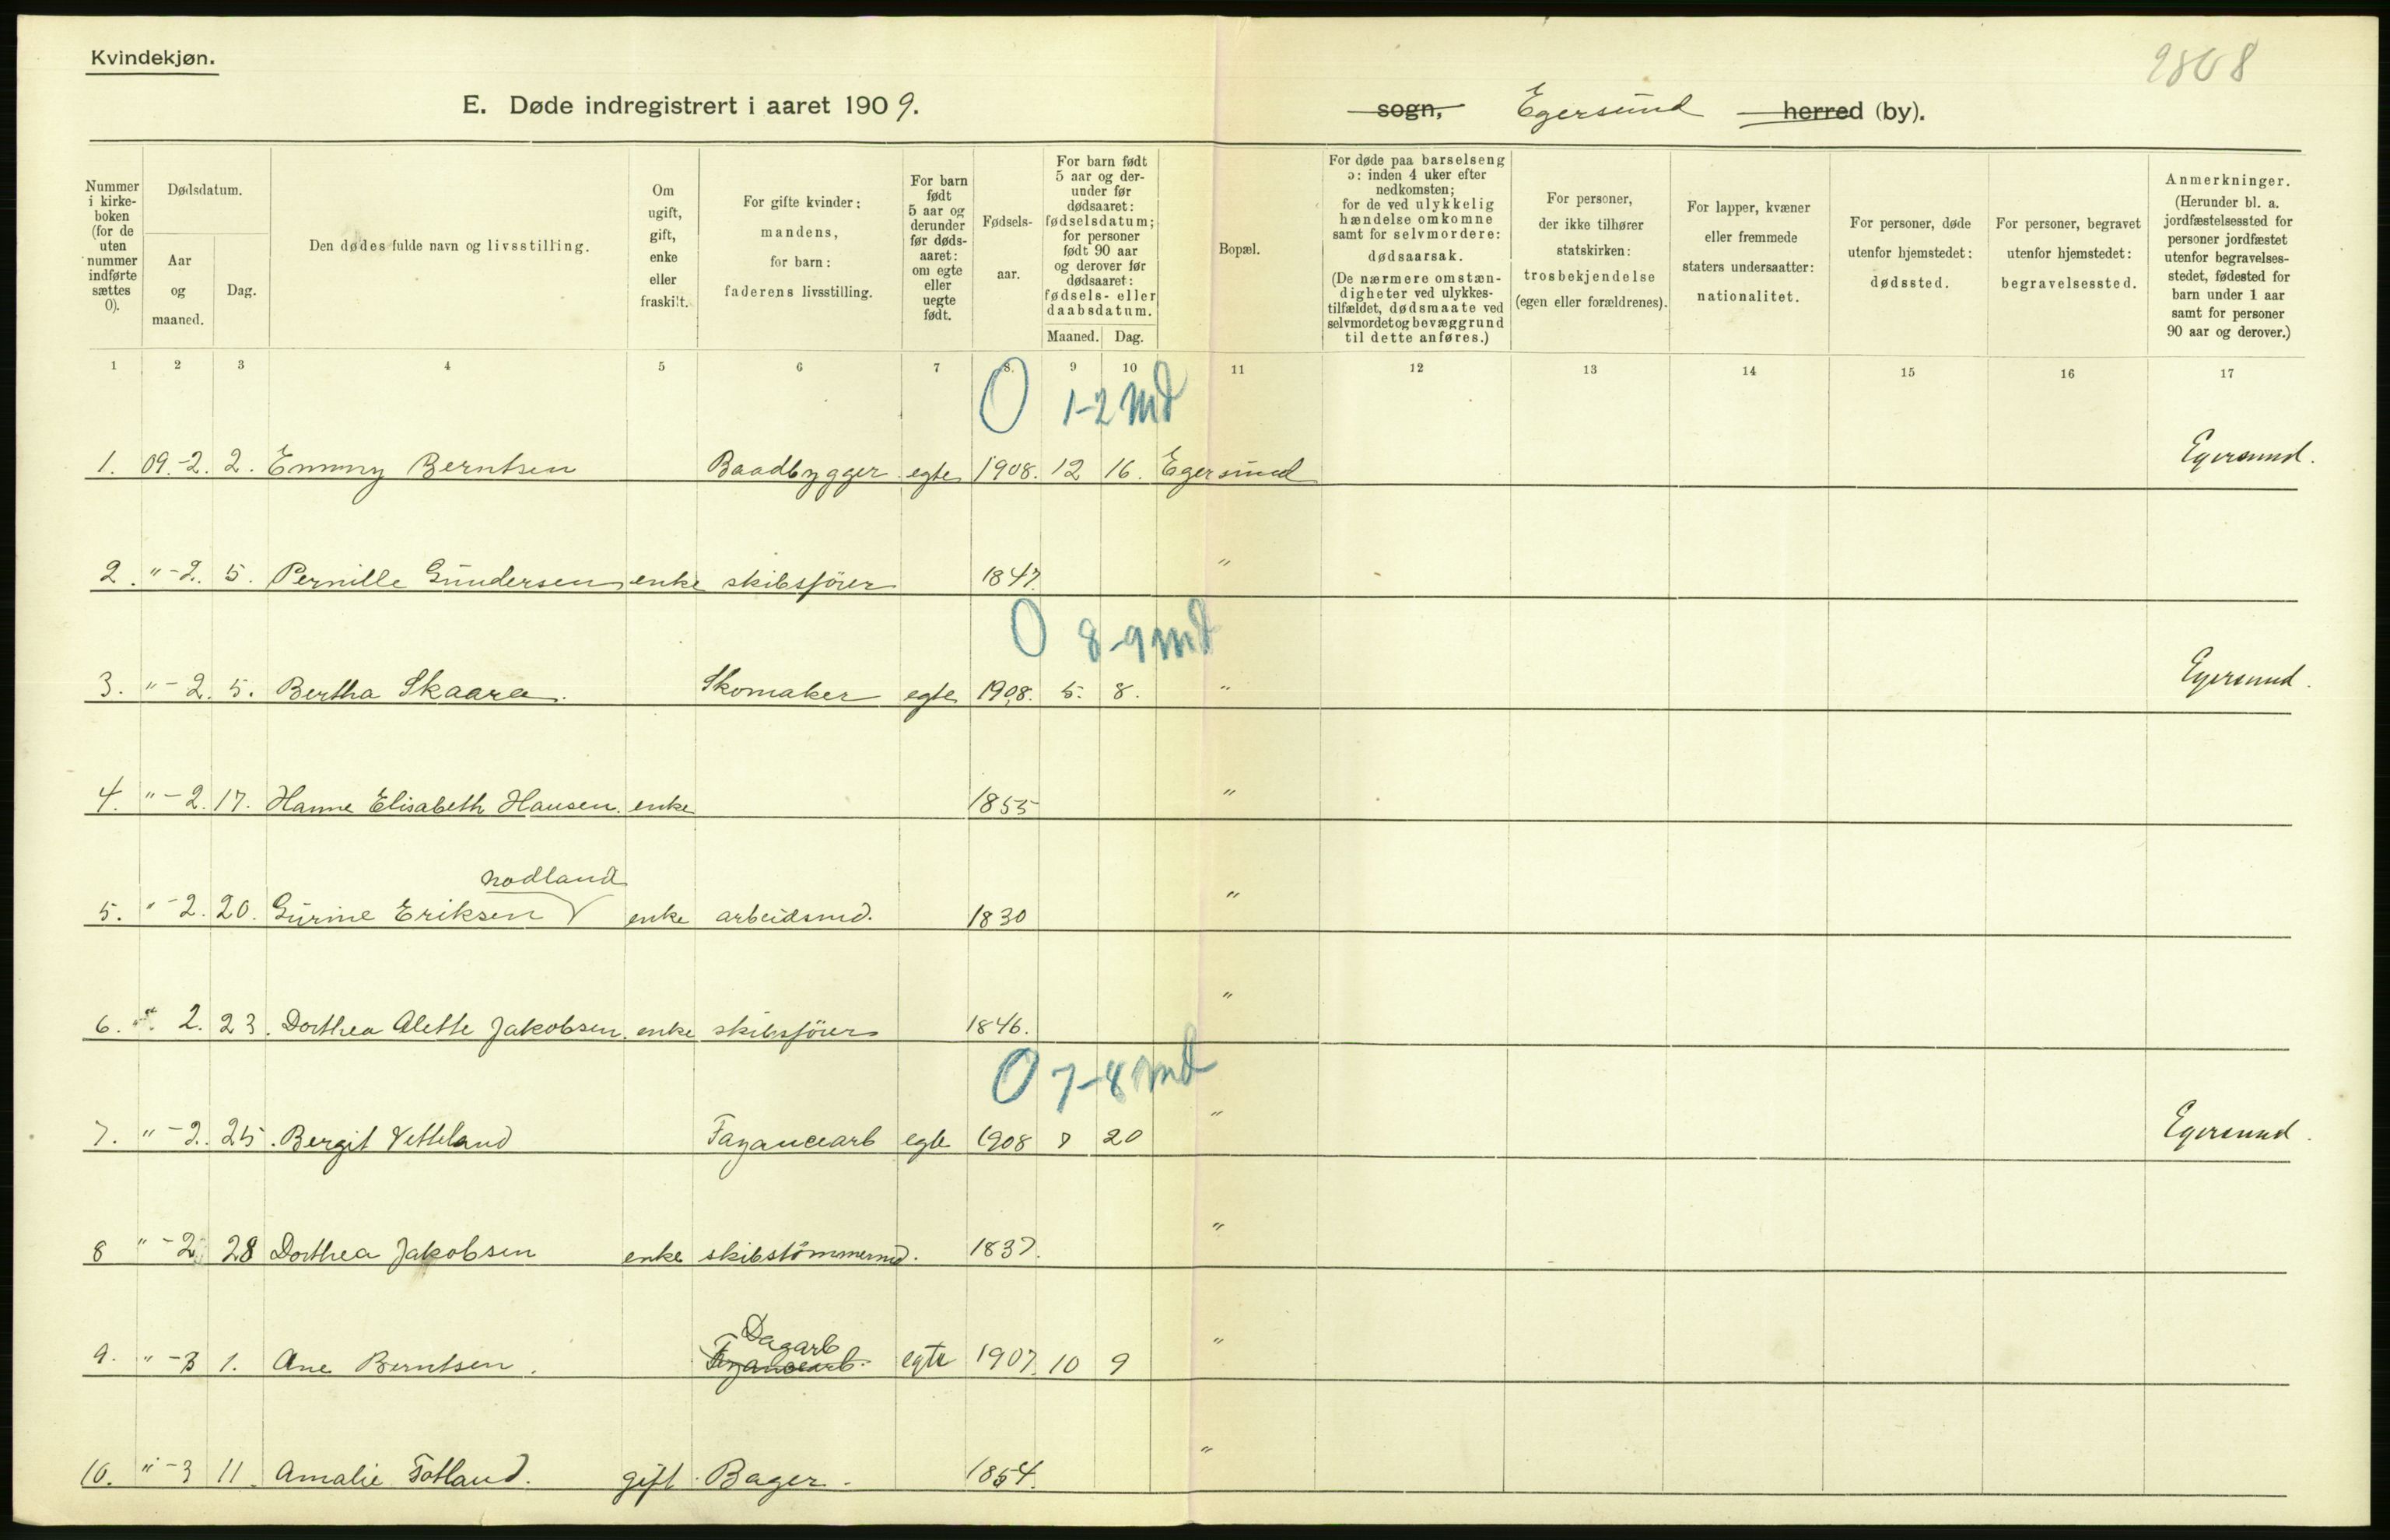 Kvindekjøn.
E. Døde indregistrert i aaret 1909.
sogn, Egersund herred (by).
Nummer i kirkeboken (for de uten nummer indførte sættes 0).
Dødsdatum.
Aar og maaned.
Dag.
Den dødes fulde navn og livsstilling.
Om ugift, gift, enke eller fraskilt.
For gifte kvinder: mandens, for barn: faderens livsstilling.
For barn født 5 aar og derunder før dødsaaret: om egte eller uegte født.
Fødselsaar.
For barn født 5 aar og derunder før dødsaaret: fødselsdatum; for personer født 90 aar og derover før dødsaaret: fødsels- eller daabsdatum.
Maaned. Dag.
Bopæl.
For døde paa barselseng ɔ: inden 4 uker efter nedkomsten; for de ved ulykkelig hændelse omkomne samt for selvmordere: dødsaarsak. (De nærmere omstændigheter ved ulykkestilfældet, dødsmaate ved selvmordet og bevæggrund til dette anføres.)
For personer, der ikke tilhører statskirken: trosbekjendelse (egen eller forældrenes).
For lapper, kvæner eller fremmede staters undersaatter: nationalitet.
For personer, døde utenfor hjemstedet: dødssted.
For personer, begravet utenfor hjemstedet: begravelsessted.
Anmerkninger. (Herunder bl. a. jordfæstelsessted for personer jordfæstet utenfor begravelsesstedet, fødested for barn under 1 aar samt for personer 90 aar og derover.)
1 2 3 4 5 6 7 8. 9 10 11 12 13 14 15 16 17
0 1-2 Md
1. 09.-2. 2. Emmy Berntsen Baadbygger egte 1908. 12 16. Egersund Egersund.
2. " -2. 5. Pernille Gundersen enke skibsförer 1847. "
0 8-9 Md
3. " -2. 5. Bertha Skaara. Skomaker egte 1908. 5. 8. " Egersund.
4. " -2. 17. Hanne Elisabeth Hansen. enke 1855 "
Nodland
5. " -2. 20. Gurine Eriksen enke arbeidsmd. 1830 "
6. " 2. 23. Dorthea Alette Jakobsen. enke skibsförer 1846. "
0 7-8 Md
7. " -2. 25. Bergit Vetteland Fayancearb egte 1908 7 20 " Egersund.
8 " -2. 28 Dorthea Jakobsen enke skibstömmermd. 1837. "
Dagarb
9. " -3 1. Ane Berntsen. Fayancearb. egte 1907. 10 9 "
10. " -3 11. Amalie Fotland. gift. Bager. 1854. "